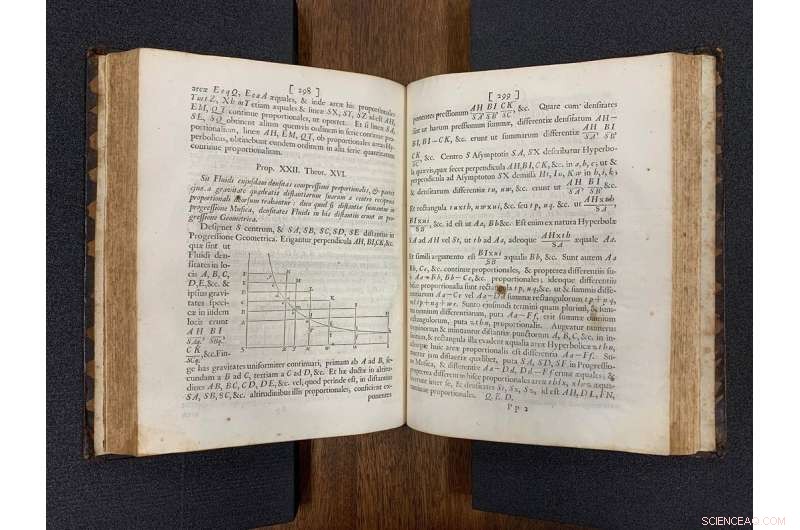 [ 298 ]
areæ E o q Q, E e a A æquales, & inde areæ his proportionales
T u t Z, X h n T etiam æquales & lineæ SX, ST, SZ id est AH,
EM, QT continue proportionales, ut oportet. Et si lineæ SA,
SE, SQ obtinent alium quemvis ordinem in serie continue pro-
portionalium, lineæ AH, EM, QT, ob proportionales areas Hy-
perbolicas, obtinebunt eundem ordinem in alia serie quantitatum
continue proportionalium.
Prop. XXII. Theor. XVI.
Sit Fluidi cujusdam densitas compressioni proportionalis, & partes
ejus a gravitate quadratis distantiarum suarum a centro reciproce
proportionali deorsum trahantur : dico quod si distantiæ sumantur in
progressione Musica, densitates Fluidi in his distantiis erunt in pro-
gressione Geometrica.
Designet S centrum, & SA, SB, SC, SD, SE distantias in
Progressione Geometrica. Erigantur perpendicula AH, BI, CK, &c.
quæ sint ut
Fluidi den-
sitates in lo-
cis A, B, C,
D, E, &c. &
ipsius gravi-
tates speci-
ficæ in iisdem
locis erunt
AH BI
SAq. SBq.
CK
SCq. &c. Fin-
ge has gravitates uniformiter continuari, primam ab A ad B, se-
cundam a B ad C, tertiam a C ad D, &c. Et hæ ductæ in altitu-
dines AB, BC, CD, DE, &c. vel, quod perinde est, in distantias
SA, SB, SC, &c. altitudinibus illis proportionales, conficient ex-
ponentes
[ 299 ]
ponentes pressionum AH BI CK, &c. Quare cum densitates
SA SB SC
sint ut harum pressionum summæ, differentiæ densitatum AH –
BI, BI – CK, &c. erunt ut summarum differentiæ AH BI
SA SB
CK, &c. Centro S Asymptotis SA, SX describatur Hyperbo-
SC
la quævis, quæ secet perpendicula AH, BI, CK, &c. in a, b, c; ut &
perpendicula ad Asymptoton SX demissa Ht, Iu, Kw in h, i, k;
& densitatum differentiæ tu, uw, &c. erunt ut AH BI, &c.
SA SB
Et rectangula tu×th, uw×ui, &c. seu tp, uq, &c. ut AH×th
SA
BI×ui, &c. id est ut Aa, Bb &c. Est enim ex natura Hyperbolæ
SB
SA ad AH vel St, ut th ad Aa, adeoque AH×th æquale Aa.
SA
Et simili argumento est BI×ui æqualis Bb, &c. Sunt autem Aa
SB
Bb, Cc, &c. continue proportionales, & propterea differentiis su-
is Aa–Bb, Bb–Cc, &c. proportionales; ideoque differentiis
hisce proportionalia sunt rectangula tp, uq, &c. ut & summis diffe-
rentiarum Aa–Cc vel Aa–Dd summæ rectangulorum tp+uq,
vel tp+uq+wr. Sunto ejusmodi termini quam plurimi, & sum-
ma omnium differentiarum, puta Aa–Ff, erit summæ omnium
rectangulorum, puta zthn, proportionalis. Augeatur numerus
terminorum & minuantur distantiæ punctorum A, B, C, &c. in in-
finitum, & rectangula illa evadent æqualia areæ Hyperbolicæ zthn,
adeoque huic areæ proportionalis est differentia Aa–Ff. Su-
mantur jam distantiæ quælibet, puta SA, SD, SF in Progressio-
ne Musica, & differentiæ Aa–Dd, Dd–Ff erunt æquales; &
propterea differentiis hisce proportionales areæ thlx, xlnz æqua-
les erunt inter se, & densitates St, Sx, Sz, id est AH, DL, FN,
continue proportionales. Q. E. D.
P p 2
SCIENCEAQ.COM